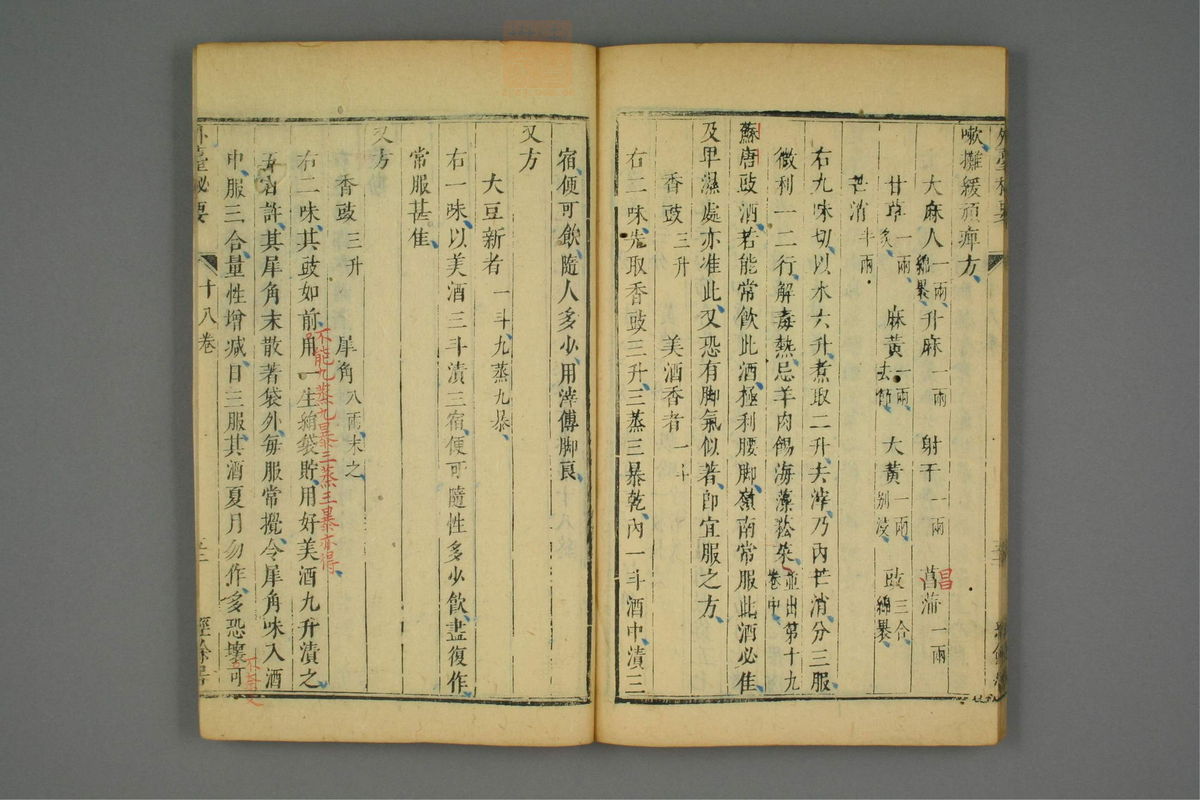 嗽攤緩頑痺方
大麻人一兩綿暴 升麻一兩 射干一兩 菖蒲一兩
昌
甘草一兩炙 麻黃一兩去節 大黃一兩別浸 豉三合綿暴
芒消半兩
右九味切以水六升煮取二升去滓乃內芒消分三服
微利一二行解毒熱忌羊肉餳海藻菘菜並出第十九卷中
蘇唐豉酒若能常飲此酒極利腰脚嶺南常服此酒必佳
及卑濕處亦准此又恐有脚氣似著即宜服之方
香豉三升 美酒香者一斗
右二味先取香豉三升三蒸三暴乾內一斗酒中漬三
宿便可飲隨人多少用滓傅脚良
又方
大豆新者一斗九蒸九暴
右一味以美酒三斗漬三宿便可隨性多少飲盡復作
常服甚佳
又方
香豉三升 犀角八兩末之
不能九蒸九暴三蒸三暴亦得
右二味其豉如前用一生絹袋貯用好美酒九升漬之
許其犀角末散著袋外每服常攪令犀角味入酒
中服三合量性增减日三服其酒夏月勿作多恐壞可
外臺秘要 十八卷